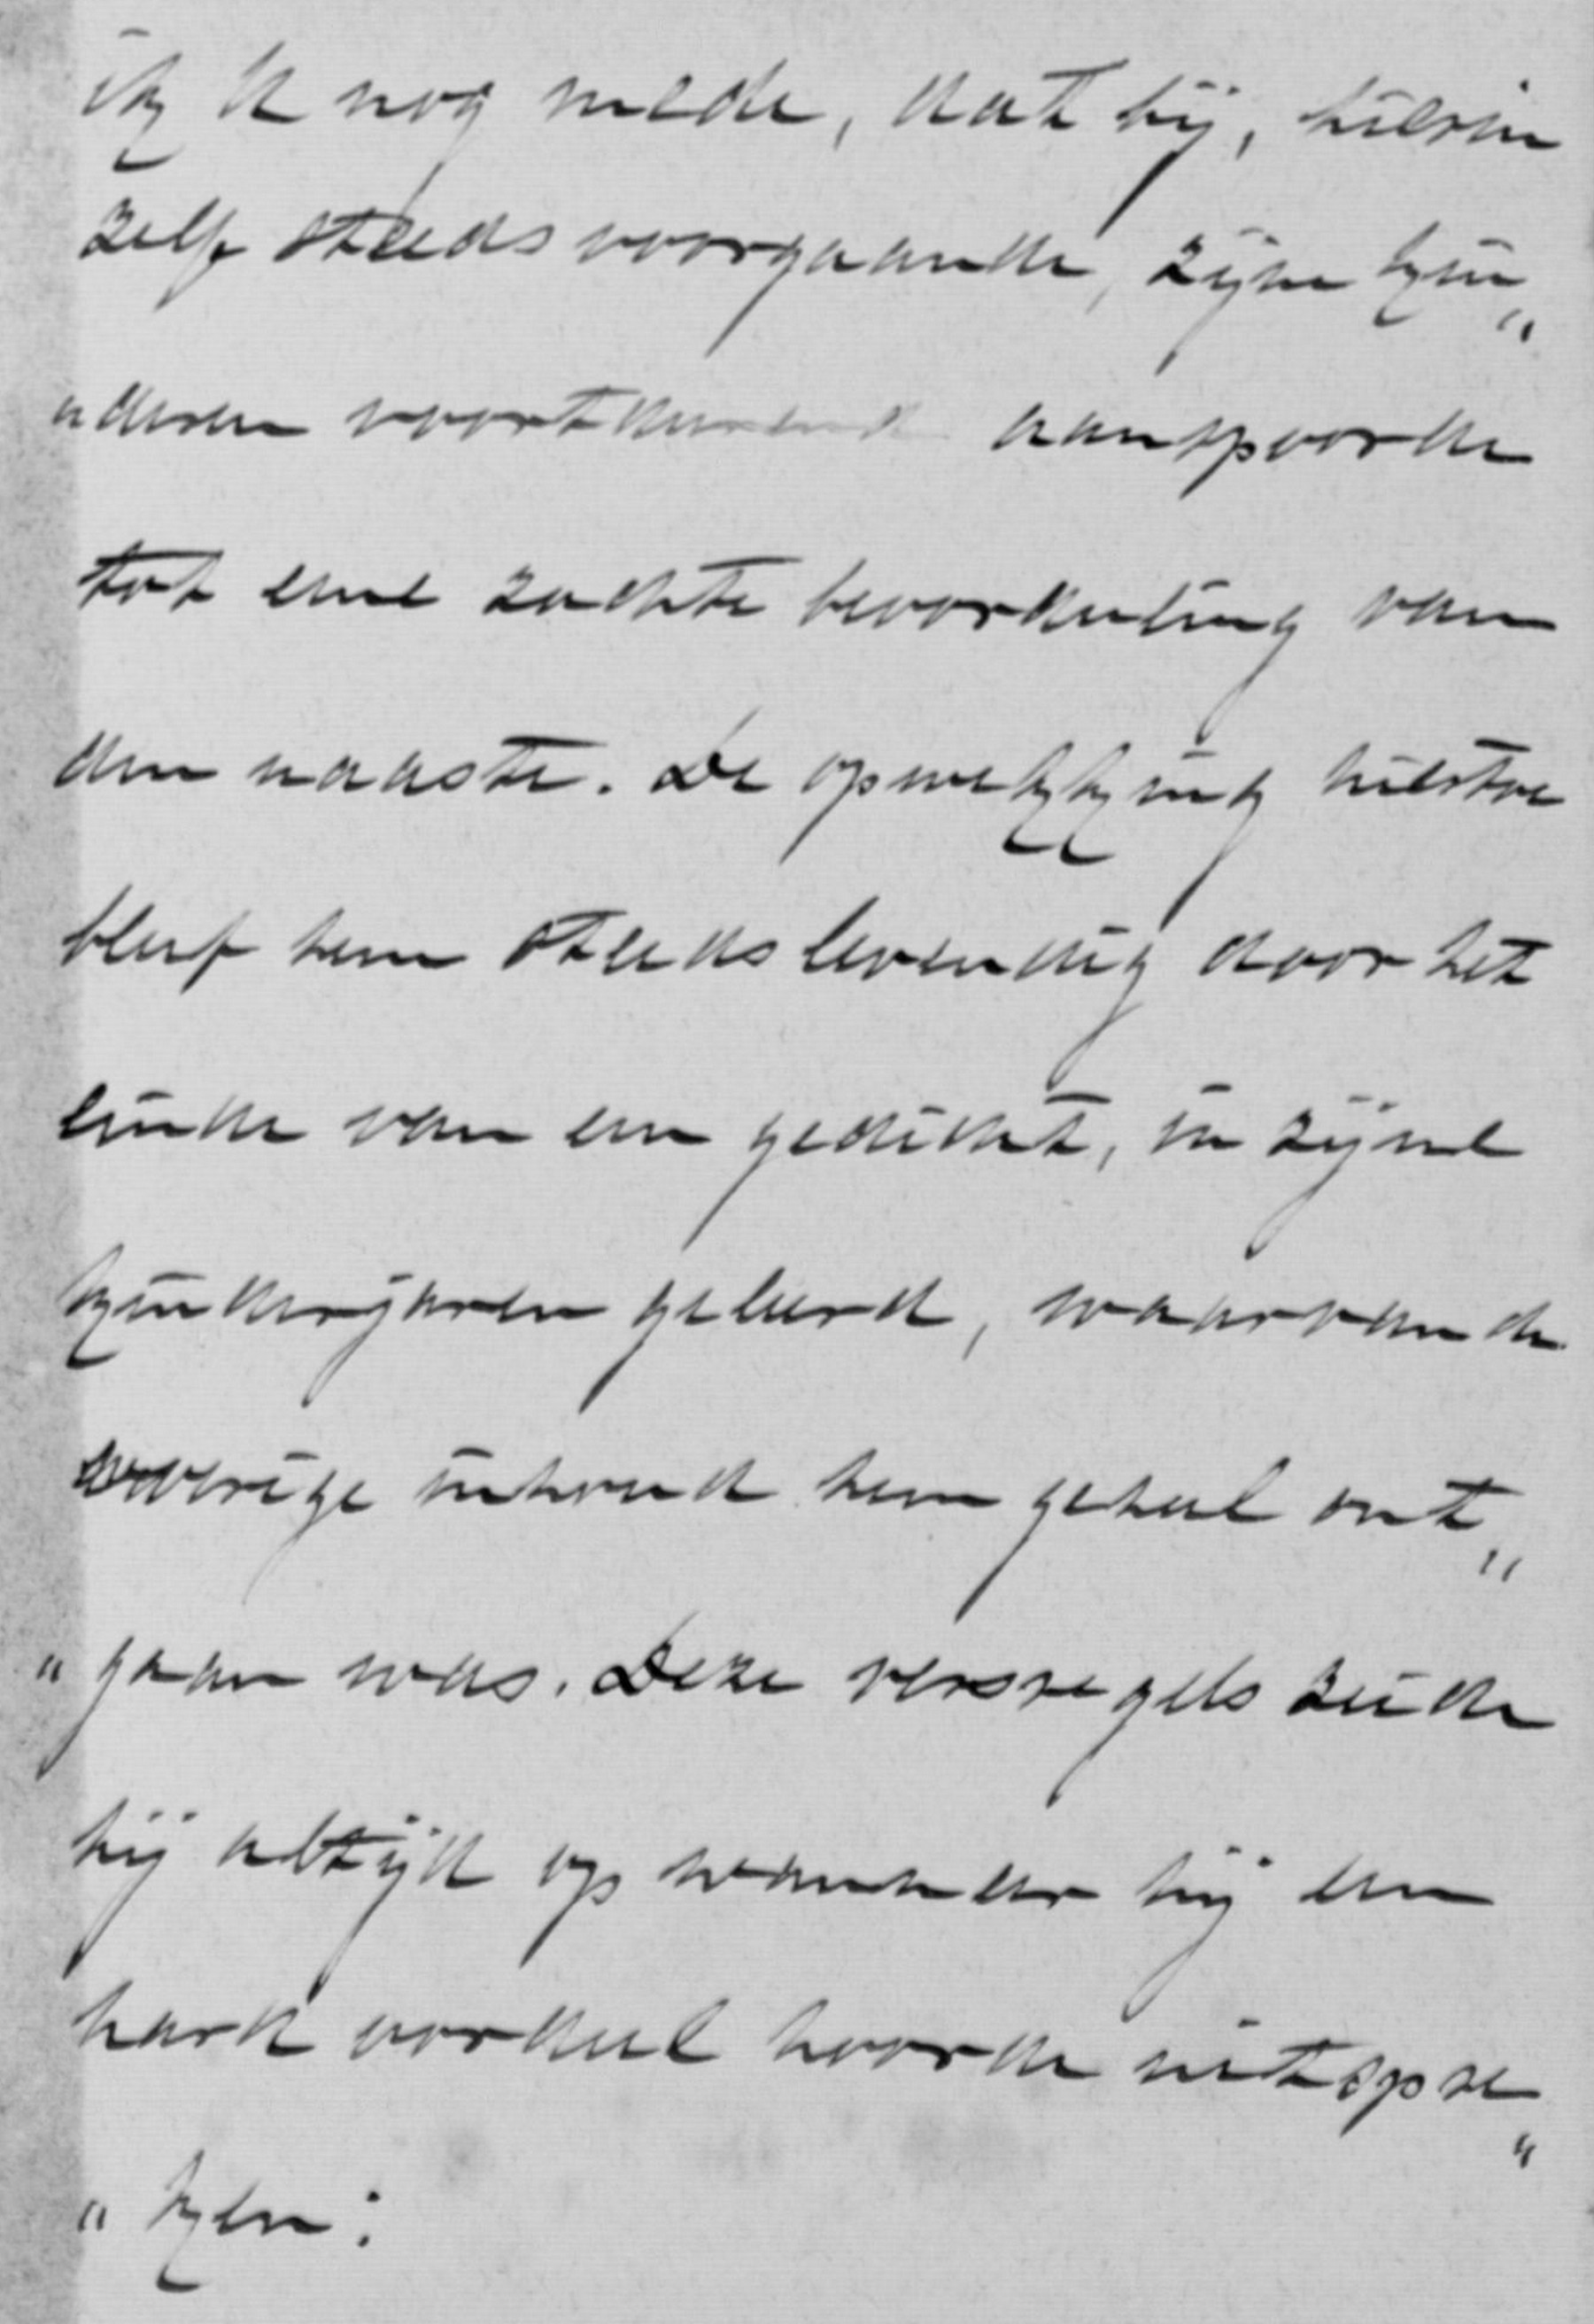 ik U nog mede, dat hij, hierin
zelf steeds voorgaande, zijne kin„
„deren voortdurend aanspoorde
tot eene zachte beoordeeling van
den naaste. De opwekking hiertoe
bleef hem steeds levendig door het
einde van een gedicht, in zijne
kinderjaren geleerd, waarvan de
overige inhoud hem geheel ont„
„gaan was. Deze versregels zeide
hij altijd op wanneer hij een
hard oordeel hoorde uitspre„
„ken: